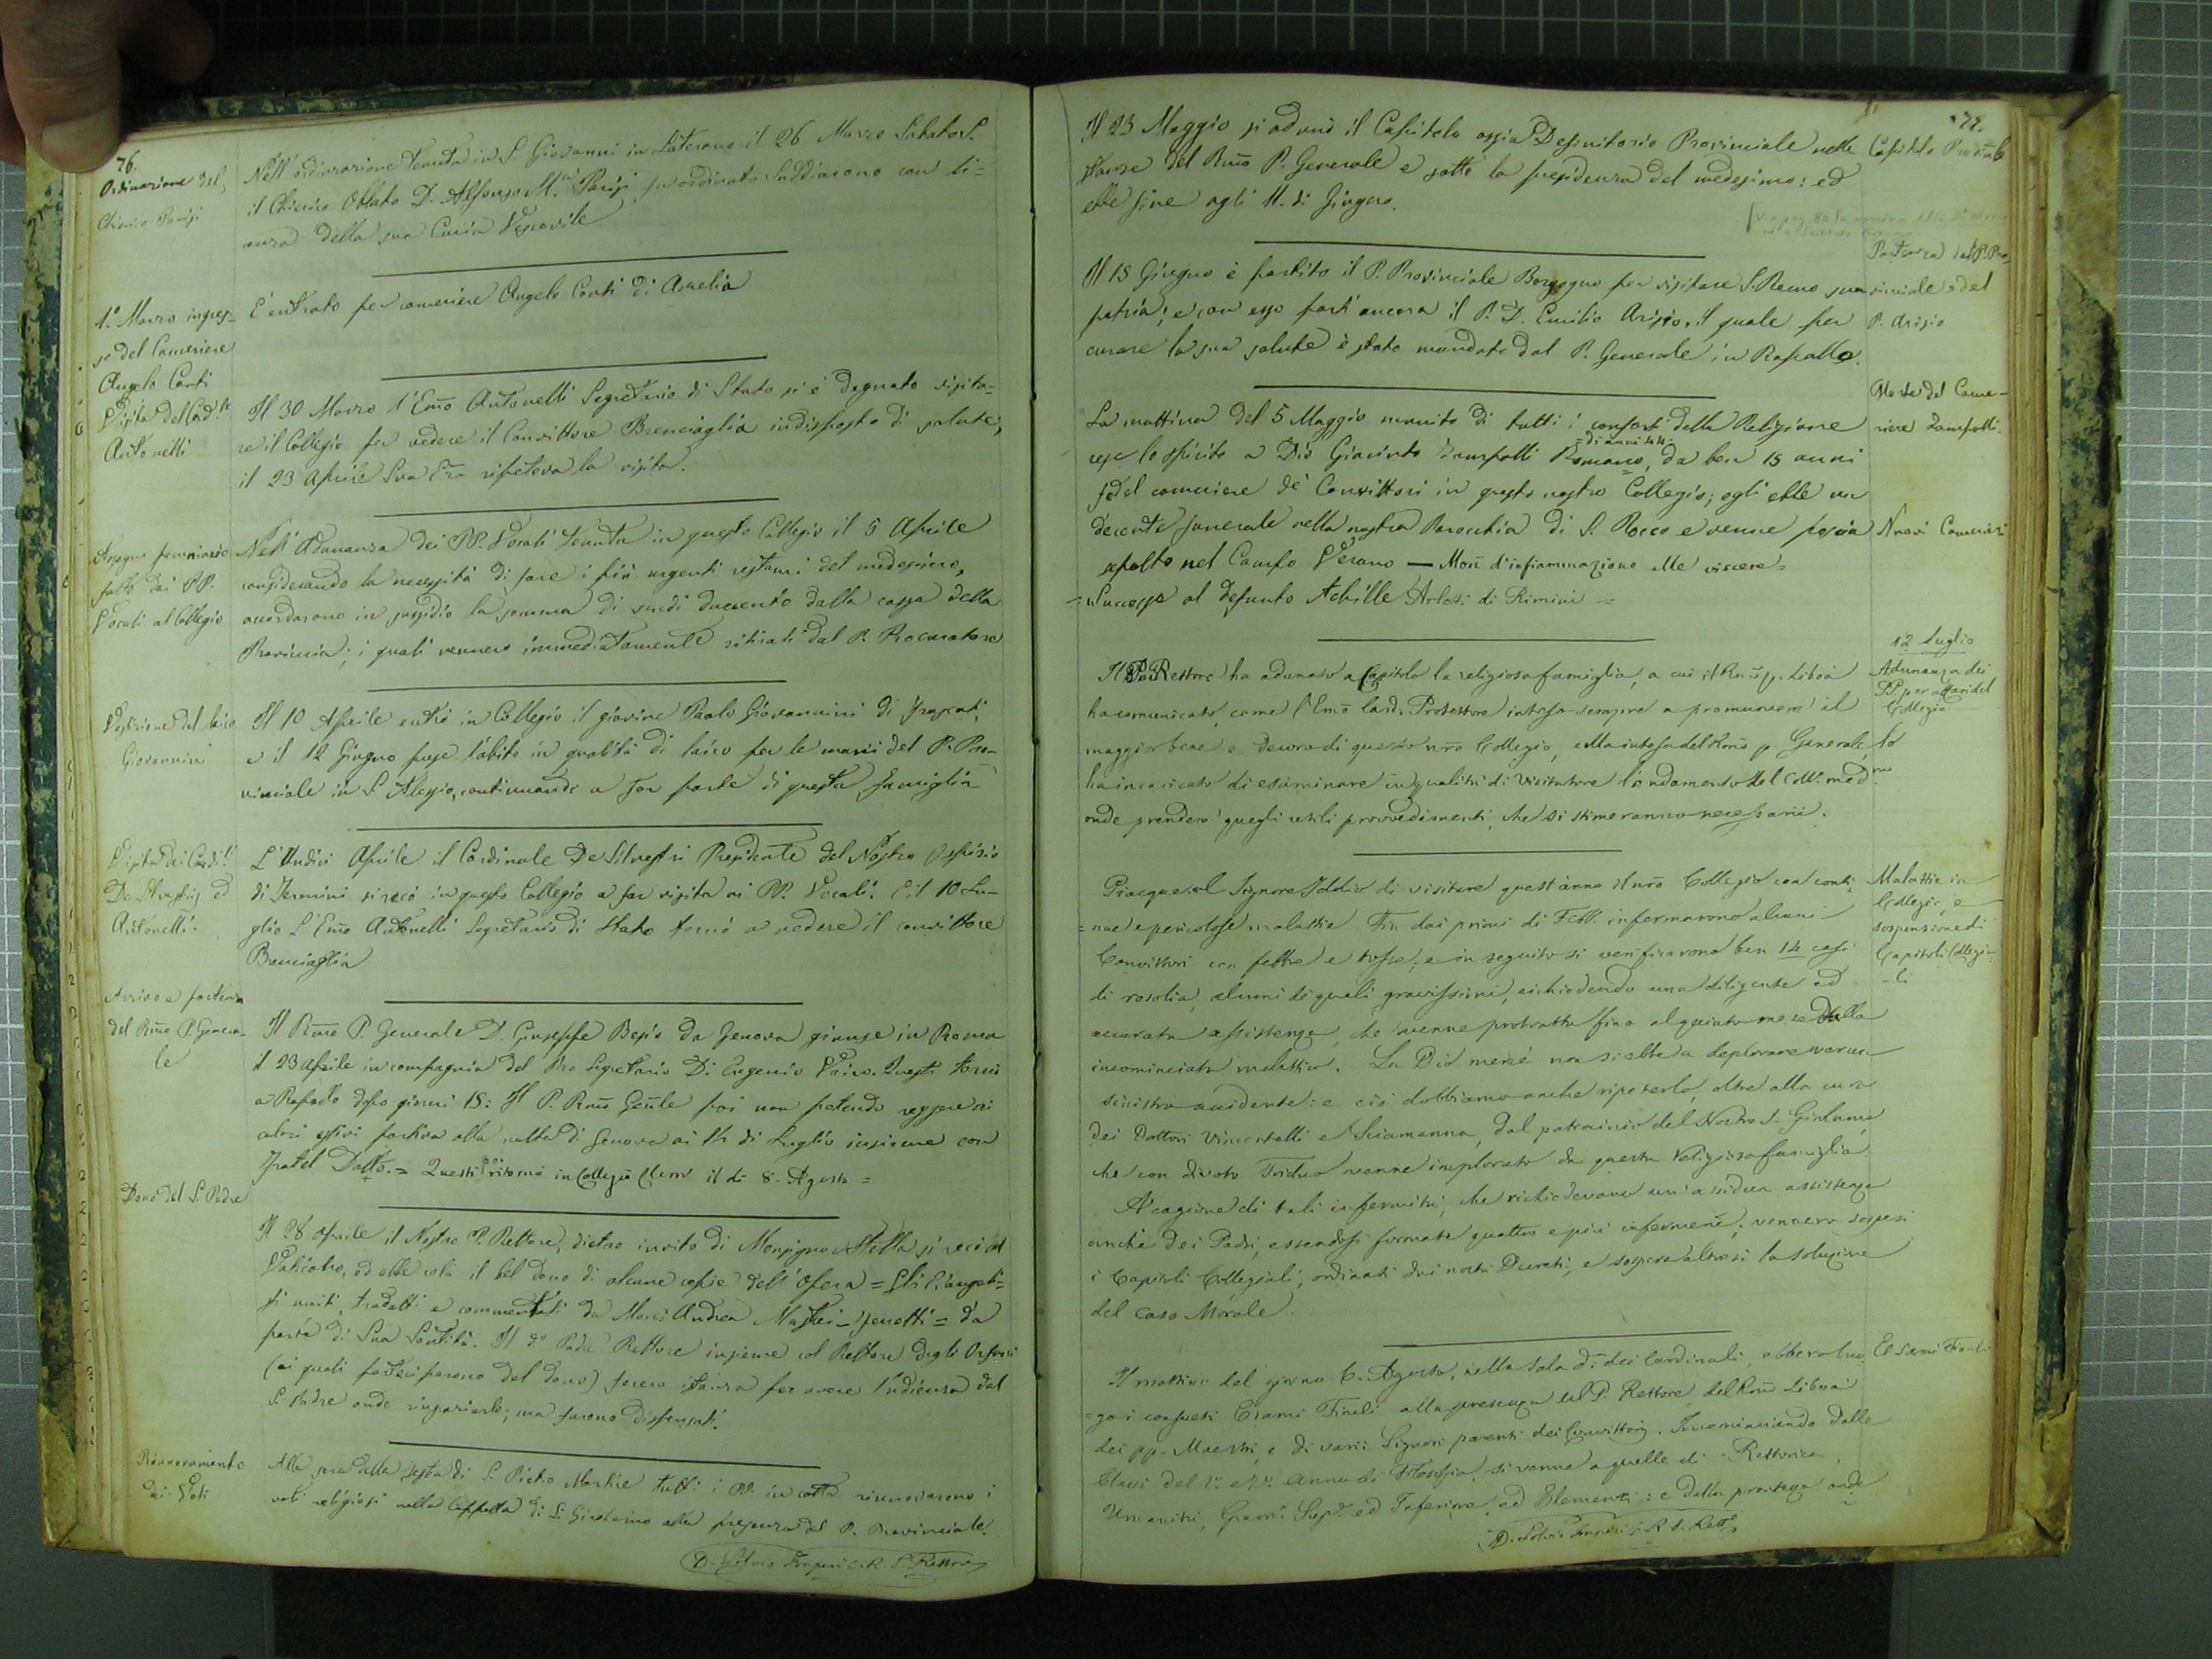 76.
Ordinazione del
Chierico Parisi
Nell'ordinazione tenuta in S. Giovanni in Laterano il 26 Marzo Sabato S.
il Chierico Oblato D. Alfonso M.a Parisi fu ordinato Suddiacono con li=
cenza della sua Curia Vescovile
1.o Marzo ingres=
so del Cameriere
Angelo Conti
È entrato per cameriere Angelo Conti di Amelia
Visita del Card.le
Antonelli
Il 30 Marzo l'Emo Antonelli Segretario di Stato si è degnato visita=
re il Collegio per vedere il Convittore Brenciaglia indisposto di salute;
il 23 Aprile Sua Eza ripeteva la visita.
Assegno pecuniario
fatto dai PP.
Vocali al Collegio
Nell'Adunanza dei PP. Vocali tenuta in questo Collegio il 5 Aprile
considerando la necessità di fare i più urgenti restauri del medesimo,
accordarono in sussidio la somma di scudi duecento dalla cassa della
Provincia; i quali vennero immediatamente ritirati dal P. Procuratore
Vestizione del laico
Giovannini
Il 10 Aprile entrò in Collegio il giovine Paolo Giovannini di Frascati,
e il 12 Giugno prese l'abito in qualità di laico per le mani del P. Pro=
vinciale in S. Alessio, continuando a far parte di questa famiglia
Visita dei Card.li
De Silvestri ed
Antonelli.
L'Undici Aprile il Cardinale De Silvestri Presidente del Nostro Ospizio
di Termini si recò in questo Collegio a far visita ai PP. Vocali. E il 10 Lu=
glio L'Emo Antonelli Segretario di Stato tornò a vedere il convittore
Brenciaglia
Arrivo e partenza
del Rmo P. Genera=
le
Il Rmo P. Generale D. Giuseppe Besio da Genova giunse in Roma
il 23 Aprile in compagnia del Pro Segretario D. Eugenio Vairo. Questi tornò
a Rapallo dopo giorni 15: Il P. Rmo Gnle poi non potendo reggere ai
calori estivi partiva alla volta di Genova ai 14 di Luglio insieme con
Fratel Datto. = Questi poi ritornò in Collegio Clem.o il dì 8. Agosto =
Dono del S. Padre
Il 28 Aprile il Nostro P. Rettore, dietro invito di Monsignor Stella si recò al
Vaticano, ed ebbe colà il bel dono di alcune copie dell'Opera = Gli Evangeli=
sti uniti, tradotti e commentati da Monsi. Andrea Mastai-Ferretti = da
parte di Sua Santità. Il d.o Padre Rettore insieme col Rettore degli Orfani
(ai quali parteciparono del dono) fecero istanza per avere Udienza dal
S. Padre onde ringraziarlo; ma furono dispensati.
Rinnovamento
dei Voti
Alla sera della festa di S. Pietro Martire tutti i PP. in cotta rinnovarono i
voti religiosi nella Cappella di S. Girolamo alla presenza del P. Provinciale.
D. Silvio Imperi C. R. S. Rettore
77.
Capitolo Provinle
Il 23 Maggio si adunò il Capitolo ossia Definitorio Provinciale nelle
stanze del Rmo P. Generale e sotto la presidenza del medesimo: ed
ebbe fine agli 11. di Giugno.
V. a pag. 80 la nomina
Partenza del P. Pro=
vinciale e del
P. Arisio
Il 15 Giugno è partito il P. Provinciale Borgogno per visitare S. Remo sua
patria; e con esso partì ancora il P. D. Emilio Arisio, il quale per
curare la sua salute è stato mandato dal P. Generale in Rapallo.
Morte del Came=
riere Zampolli.
La mattina del 5 Maggio munito di tutti i conforti della Religione
rese lo spirito a Dio Giacinto Zampolli Romano, =di anni 44= da ben 15 anni
fedel cameriere de' Convittori in questo nostro Collegio; egli ebbe un
decente funerale nella nostra Parocchia di S. Rocco e venne poscia
sepolto nel Campo Verano — Morì d'infiammazione alle viscere=
Nuovi Camerieri
= Successe al defunto Achille Arlotti di Rimini =
12 Luglio
Adunanza dei
PP. per affari del
Collegio
Il P. Rettore ha adunato a Capitolo la religiosa famiglia, a cui il Rmo p. Libois
ha comunicato, come l'Emo Card. Protettore inteso sempre a promuovere il
maggior bene e decoro di questo nro Collegio, alla intesa del Rmo p. Generale, lo
ha incaricato di esaminare in qualità di Visitatore l'andamento del Coll. med.mo
onde prendere quegli utili provvedimenti, che si stimeranno necessarii.
Malattie in
Collegio, e
sospensione di
Capitoli Collegia=
li
Piacque al Signore Iddio di visitare quest'anno il nro Collegio con conti=
=nue e pericolose malattie. Fin dai primi di Febb. infermarono alcuni
Convittori con febbre e tosse; e in seguito si verificarono ben 14 casi
di rosolia, alcuni di quali gravissimi, richiedendo una diligente ed
accurata assistenza, che venne protratta fino al quinto mese dalla
incominciata malattia. La Dio mercè non si ebbe a deplorare verun
sinistro accidente: e ciò dobbiamo anche ripeterlo, oltre alla cura
dei Dottori Vincentelli e Sciamanna, dal patrocinio del Nostro S. Girolamo,
che con divoto Triduo venne implorato da questa religiosa famiglia.
A cagione di tali infermità, che richiedevano un'assidua assistenza
anche dei Padri, essendosi formate quattro e più infermerie, vennero sospesi
i Capitoli Collegiali, ordinati dai nostri Decreti, e sospesa altresì la soluzione
del caso Morale.
Esami Finali
Il mattino del giorno 6. Agosto, nella Sala dì dei Cardinali, ebbero luo
=go i consueti Esami Finali alla presenza del P. Rettore, del Rmo Libois
dei pp. Maestri, e di varii Signori parenti dei Convittori. Incominciando dalle
Classi del 1.o e 2.o Anno di Filosofia, si venne a quelle di Rettorica,
Umanità, Gram. Sup.e ed Inferiore, ed Elementi: e dalla prontezza onde
D. Silvio Imperi C. R. S. Rett.e